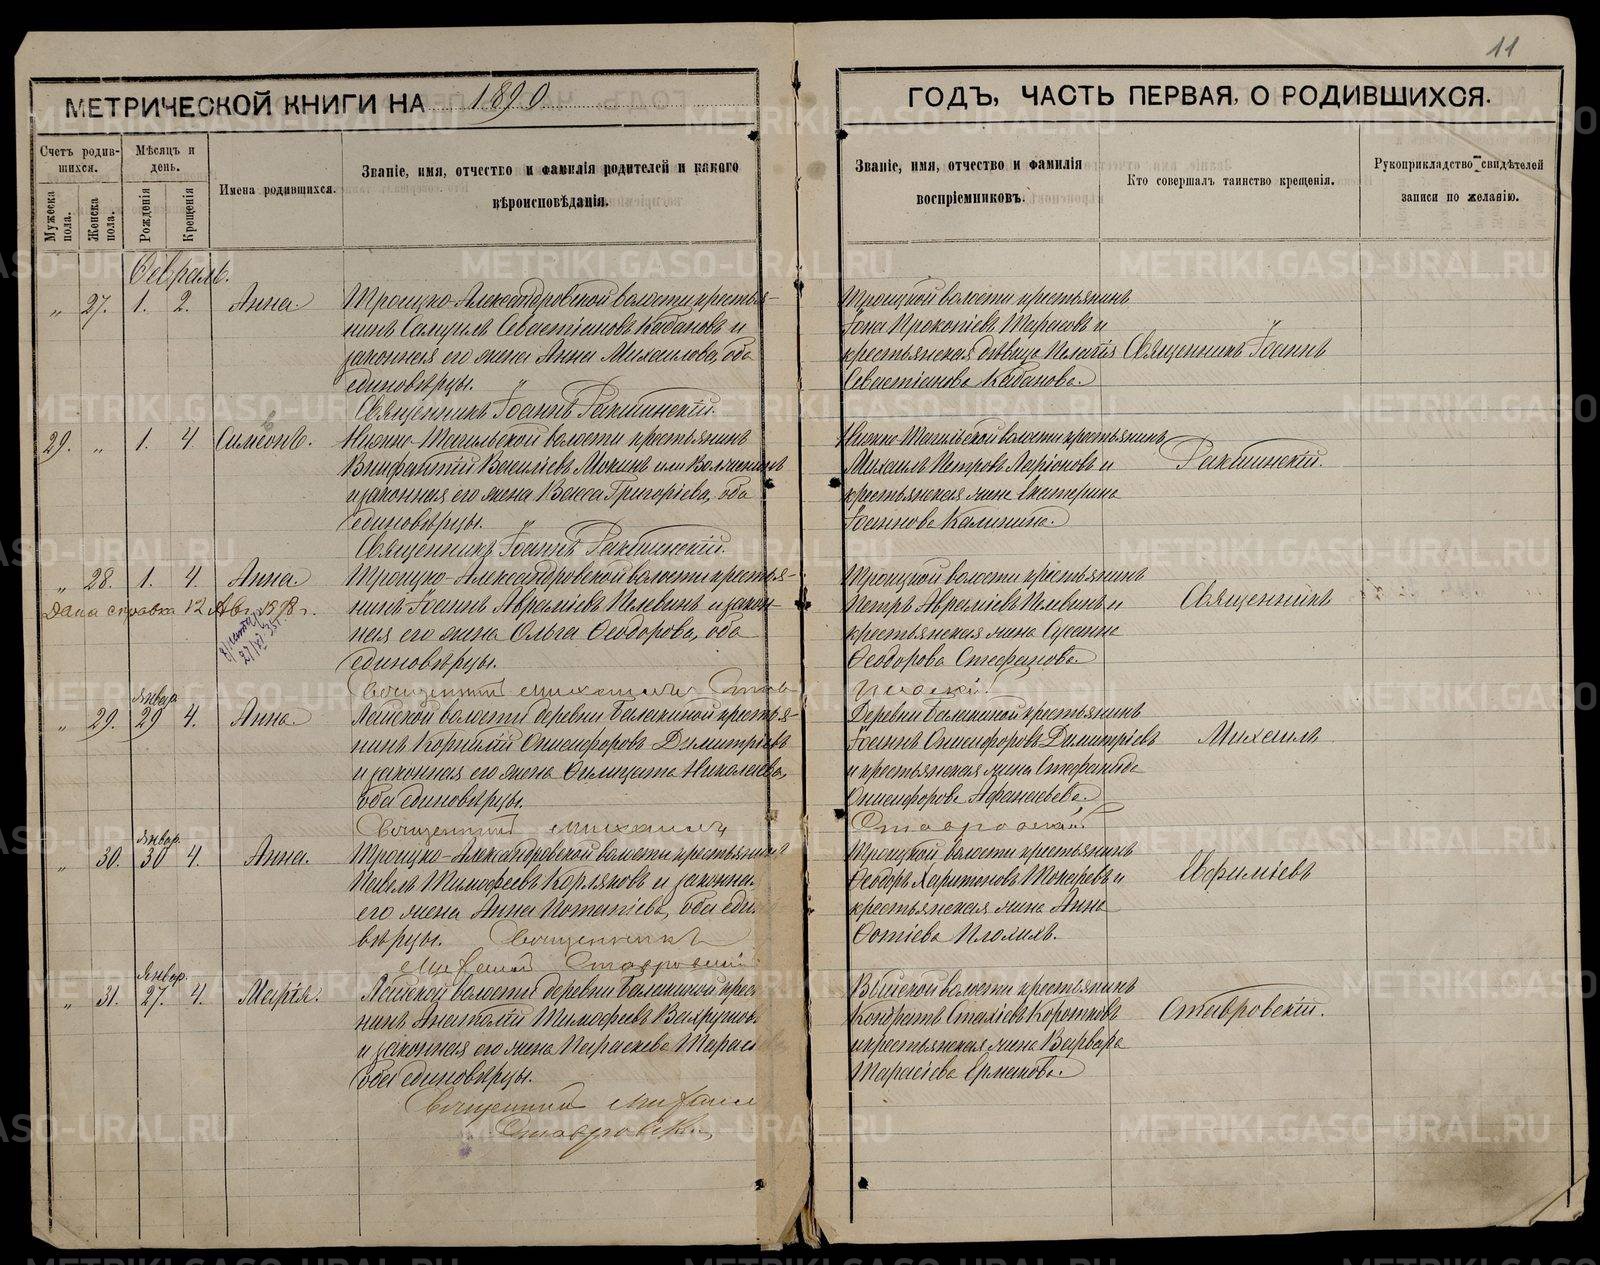 11
МЕТРИЧЕСКОЙ КНИГИ НА 1890
ГОДЪ, ЧАСТЬ ПЕРВАЯ, О РОДИВШИХСЯ.
Счетъ родив-
шихся.
Мужеска пола.
Женска пола.
Мѣсяцъ и
день.
Рожденія
Крещенія
Имена родившихся.
Званіе, имя, отчество и фамилія родителей и какого
вѣроисповѣданія.
Званіе, имя, отчество и фамилія
воспріемниковъ.
Кто совершалъ таинство крещенія.
Рукоприкладство свидѣтелей
записи по желанію.
Февраль.
" 27. 1. 2. Анна.
Троицко-Александровской волости крестья-
нинъ Самуилъ Севастіановъ Кабановъ и
законная его жена Анна Михаилова, оба
единовѣрцы.
Священникъ Іоаннъ Ракшинскій.
Троицкой волости крестьянинъ
Іона Прокопіевъ Тарасовъ и
крестьянская дѣвица Пелагія
Севастіанова Кабанова.
Священникъ Іоаннъ
29. " 1. 4. Симеонъ.
Нижно-Тагильской волости крестьянинъ
Внифантій Василіевъ Мокинъ или
и законная его жена Васса Григоріева, оба
единовѣрцы.
Священникъ Іоаннъ Ракшинскій.
Нижно-Тагильской волости крестьянинъ
Михаилъ Петровъ Ларіоновъ и
крестьянская жена Екатерина
Іоаннова Калинина.
Ракшинскій.
" 28. 1. 4. Анна.
Дана справка 12 Авг. 1918 г.
27/XI 35г.
Троицко-Александровской волости крестья-
нинъ Іоаннъ Авраміевъ Пелевинъ и закон-
ная его жена Ольга Ѳеодорова, оба
единовѣрцы.
Священникъ Михаилъ Ставровскій.
Троицкой волости крестьянинъ
Петръ Авраміевъ Пелевинъ и
крестьянская жена Сусанна
Ѳеодорова Стефанова.
Священникъ
" 29. Январ. 29 4. Анна.
Лайской волости деревни Балакиной крестья-
нинъ Корнилій Онисифоровъ Димитріевъ
и законная его жена Фелицата Николаева,
оба единовѣрцы.
Священникъ Михаилъ Ставровскій
Деревни Балакиной крестьянинъ
Іоаннъ Онисифоровъ Димитріевъ
и крестьянская жена Стефанида
Онисифорова Афанасьева.
Михаилъ
" 30. Январ. 30 4. Анна.
Троицко-Александровской волости крестьянинъ
Павелъ Тимофеевъ Корляковъ и законна
его жена Анна Потапіева, оба еди
вѣрцы. Священникъ
Михаилъ Ставровскій
Троицкой волости крестьянинъ
Ѳеодоръ Харитоновъ Токаревъ и
крестьянская жена Анна
Фотіева Плохихъ.
Евфиміевъ
" 31. Январ. 27. 4. Марія.
Лайской волости деревни Балакиной крест
нинъ Анатолій Тимофеевъ Вахрушов
и законная его жена Параскева Тараси
оба единовѣрцы.
Священникъ Михаил
Ставровскій
Выйской волости крестьянинъ
Кондратъ Стахіевъ Коротковъ
и крестьянская жена Варвара
Тарасіева Ермакова.
Ставровскій.
METRIKI.GASO-URAL.RU